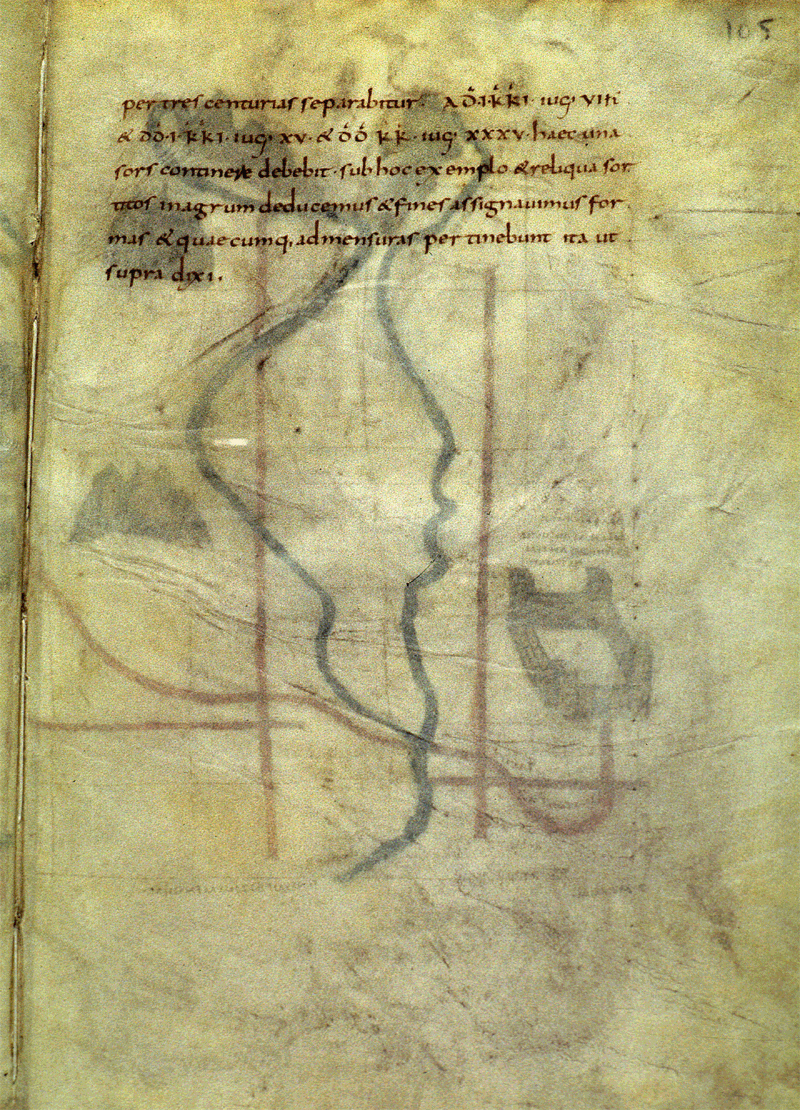 105
per tres centurias separabitur· A D̄·I·K̄K̄I· iug· VIII
& D̄D̄·I·K̄K̄I· iug· XV· & D̄D̄ K̄K̄· iug· XXXV· haec una
sors debebit· sub hoc exemplo & reliqua sor
titos in agrum deducemus & fines assignauimus for
mas & quaecumq, ad mensuras pertinebunt ita ut
supra dixi.